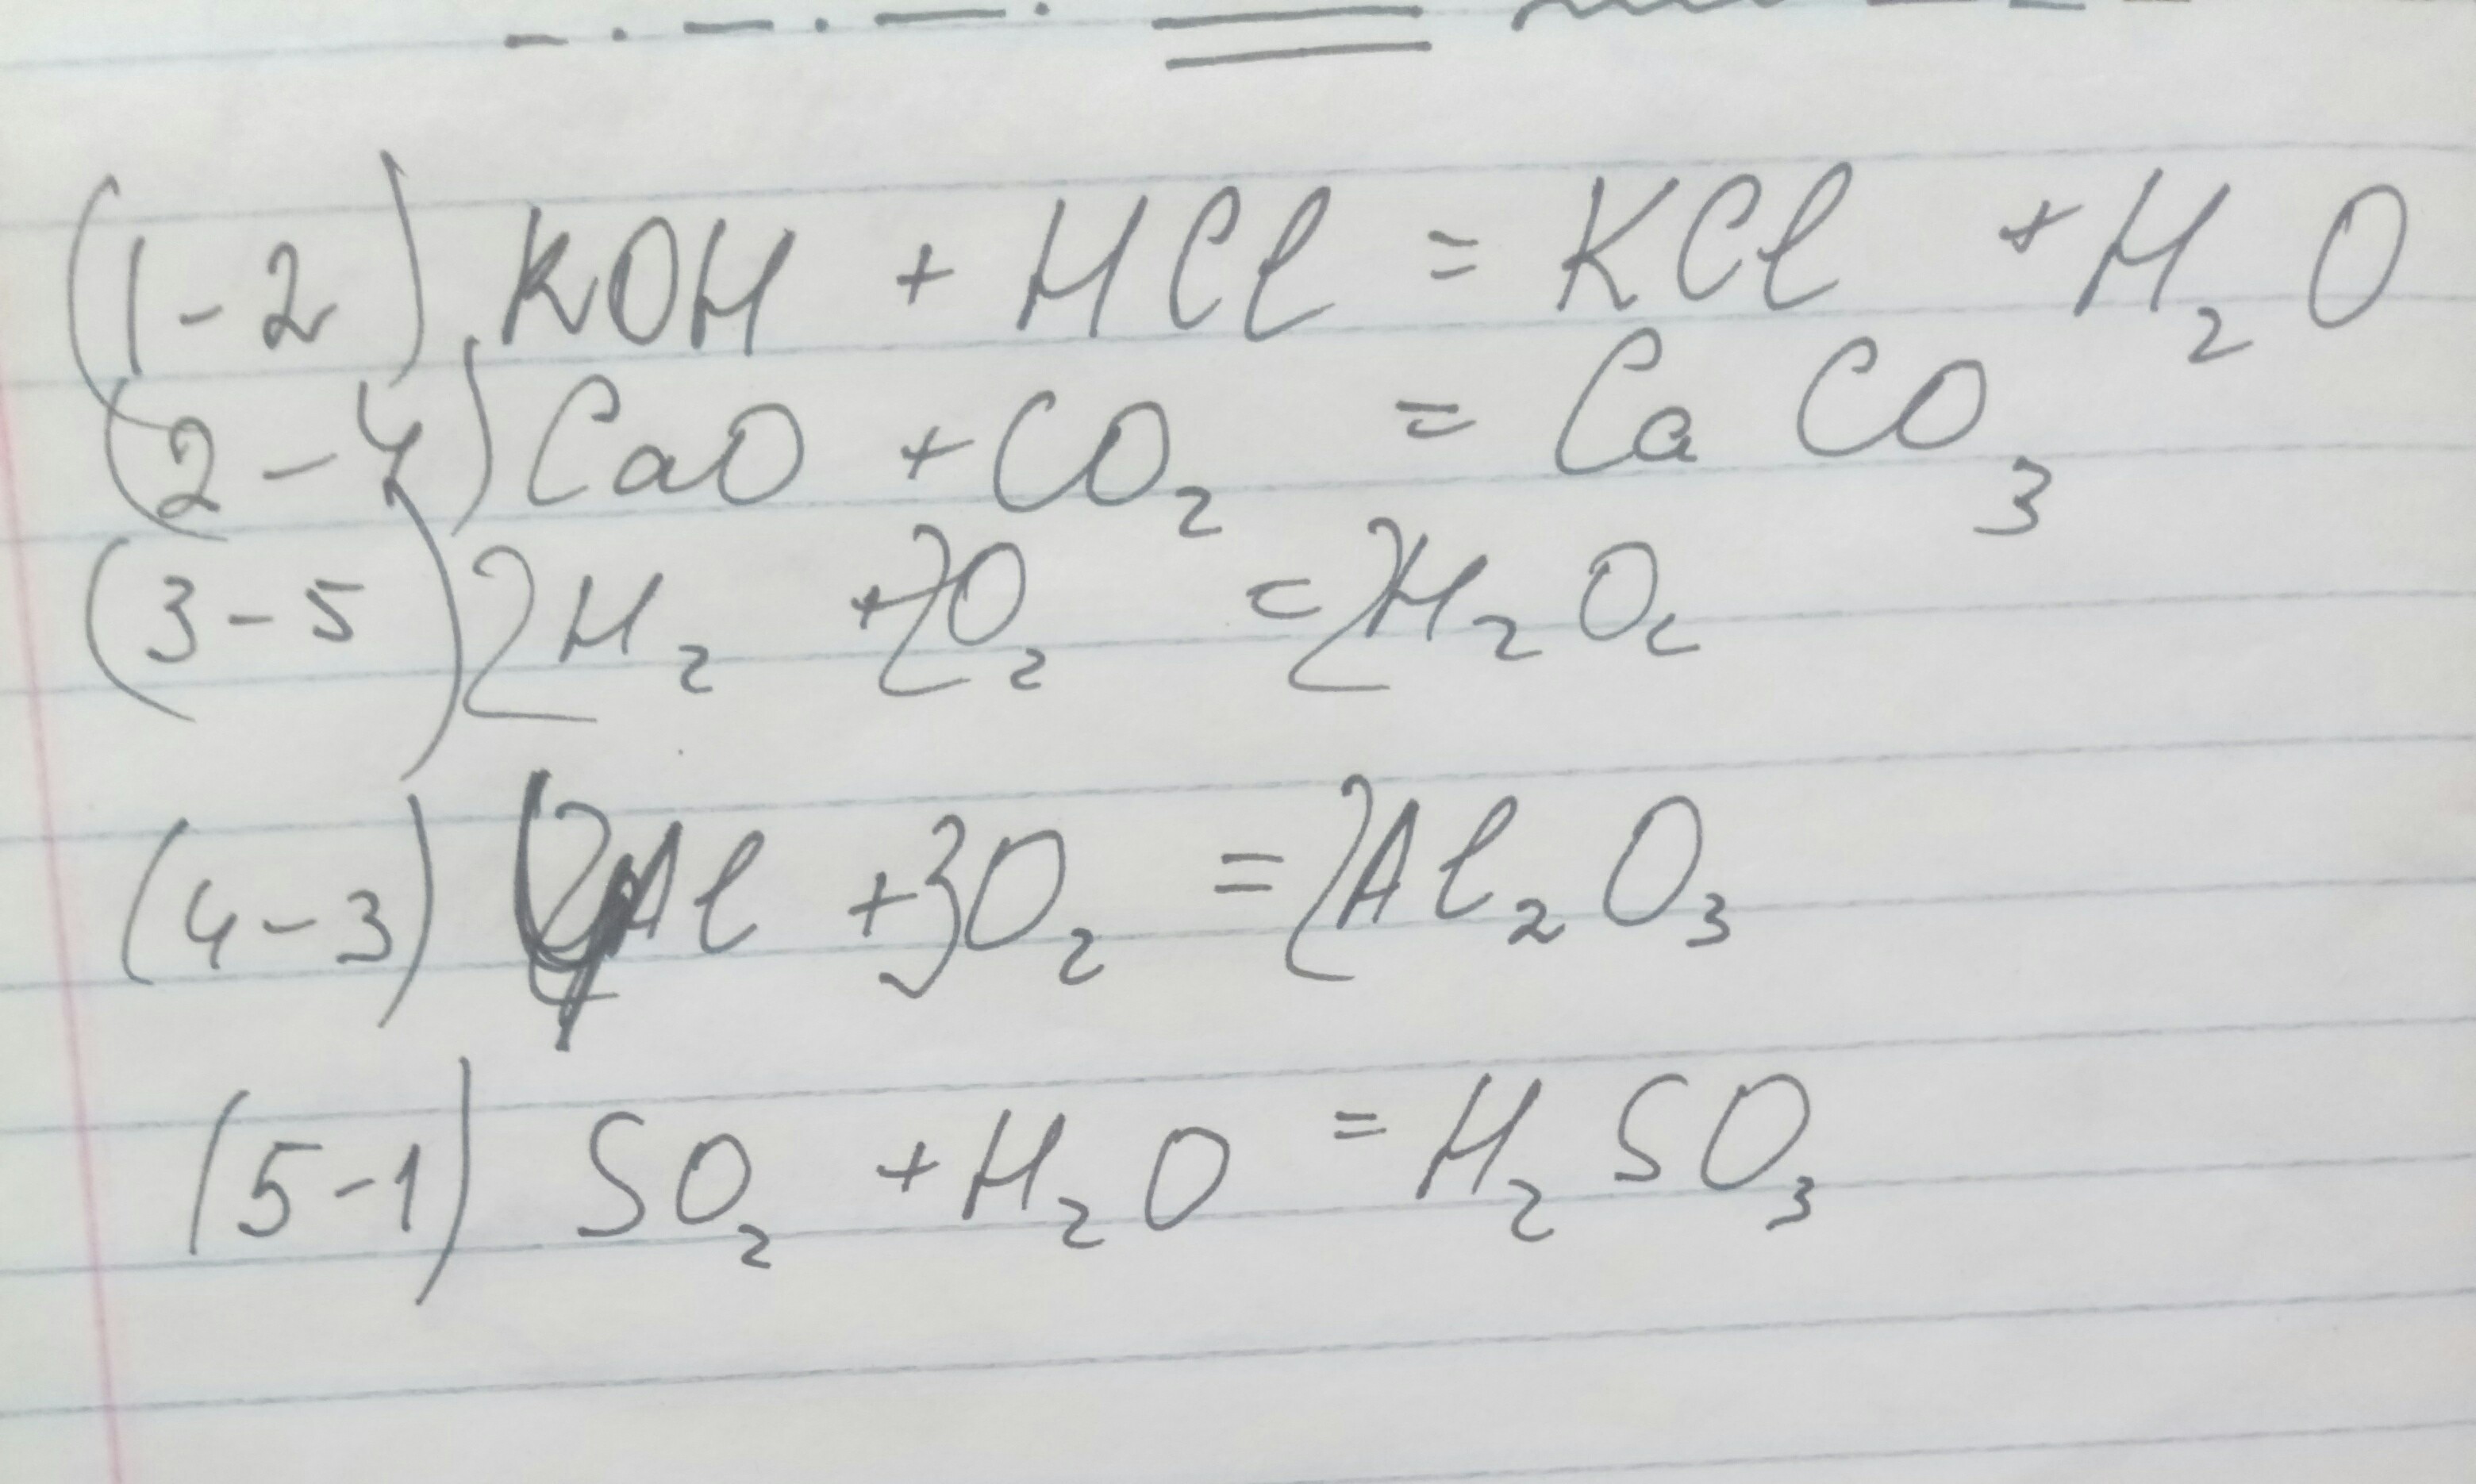 (1-2) KOH + HCl = KCl + H₂O
(2-4) CaO + CO₂ = CaCO₃
(3-5) 2H₂ + 2O₂ = 2H₂O₂
(4-3) 4Al + 3O₂ = 2Al₂O₃
(5-1) SO₂ + H₂O = H₂SO₃